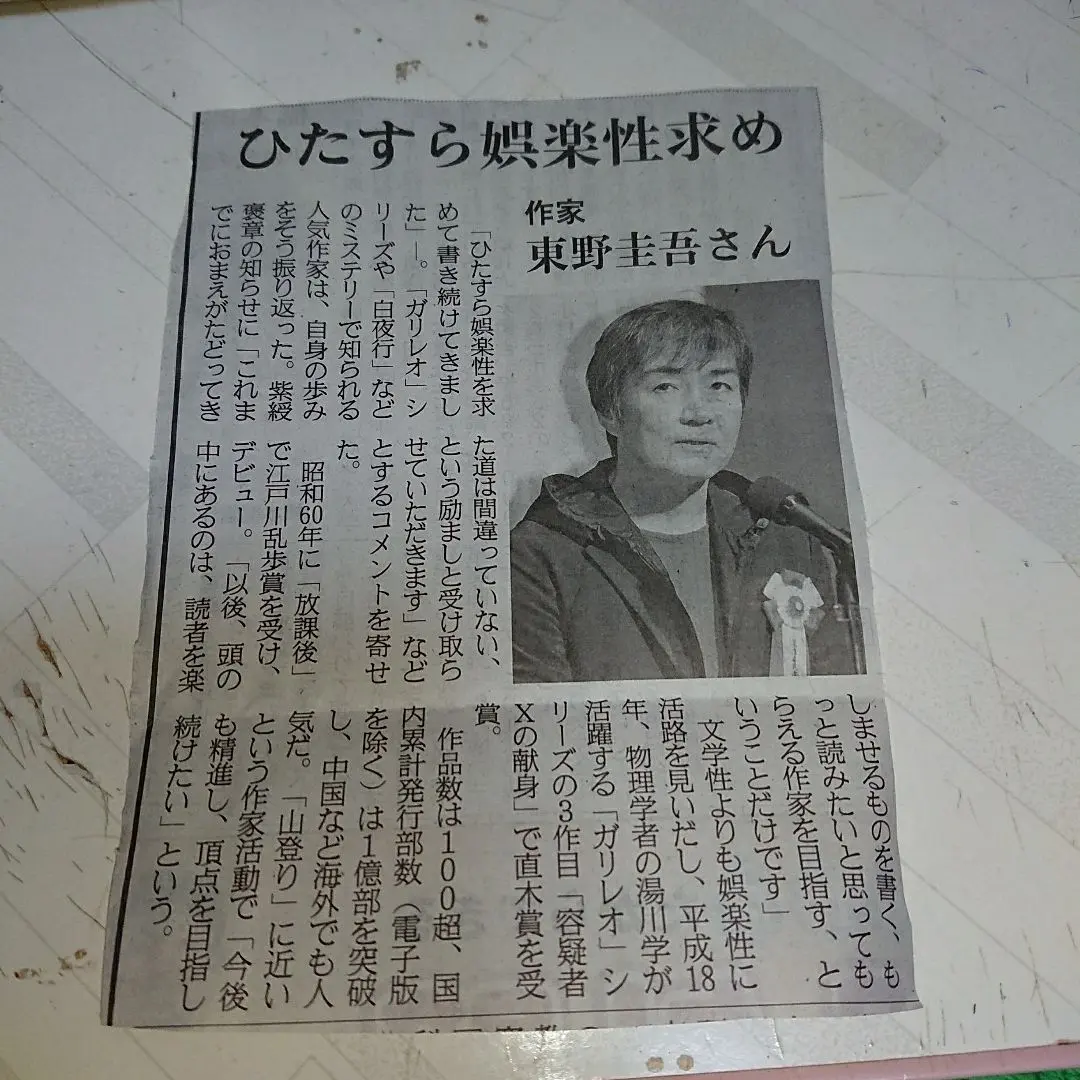 ひたすら娯楽性求め
作家
東野圭吾さん
「ひたすら娯楽性を求
めて書き続けてきまし
た」―。「ガリレオ」シ
リーズや「白夜行」など
のミステリーで知られる
人気作家は、自身の歩み
をそう振り返った。紫綬
褒章の知らせに「これま
でにおまえがたどってき
た道は間違っていない、
という励ましと受け取ら
せていただきます」など
とするコメントを寄せ
た。
昭和60年に「放課後」
で江戸川乱歩賞を受け、
デビュー。「以後、頭の
中にあるのは、読者を楽
しませるものを書く、も
っと読みたいと思っても
らえる作家を目指す、と
いうことだけです」
文学性よりも娯楽性に
活路を見いだし、平成18
年、物理学者の湯川学が
活躍する「ガリレオ」シ
リーズの3作目「容疑者
Xの献身」で直木賞を受
賞。
作品数は100超、国
内累計発行部数（電子版
を除く）は1億部を突破
し、中国など海外でも人
気だ。「山登り」に近い
という作家活動で「今後
も精進し、頂点を目指し
続けたい」という。